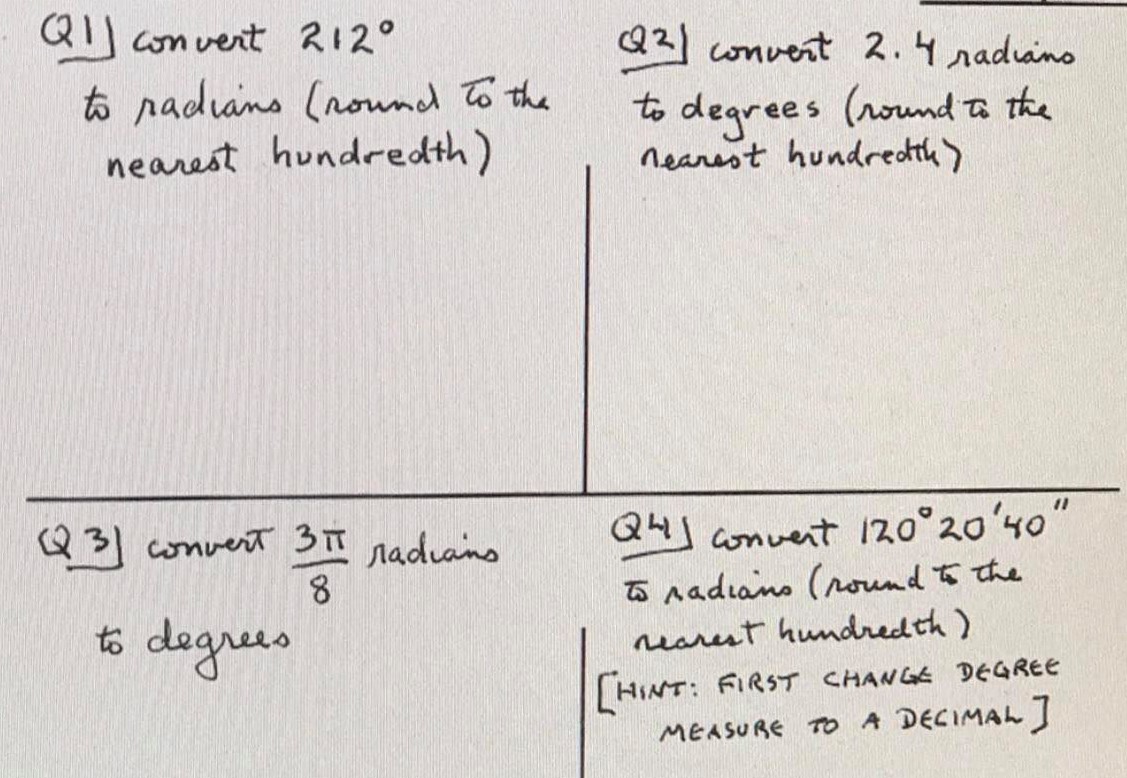 Q1] convert 212°
to radians (round to the
nearest hundredth)
Q2] convert 2.4 radians
to degrees (round to the
nearest hundredth)
Q3] convert 3π/8 radians
to degrees
Q4] convert 120°20'40"
to radians (round to the
nearest hundredth)
[HINT: FIRST CHANGE DEGREE
MEASURE TO A DECIMAL]